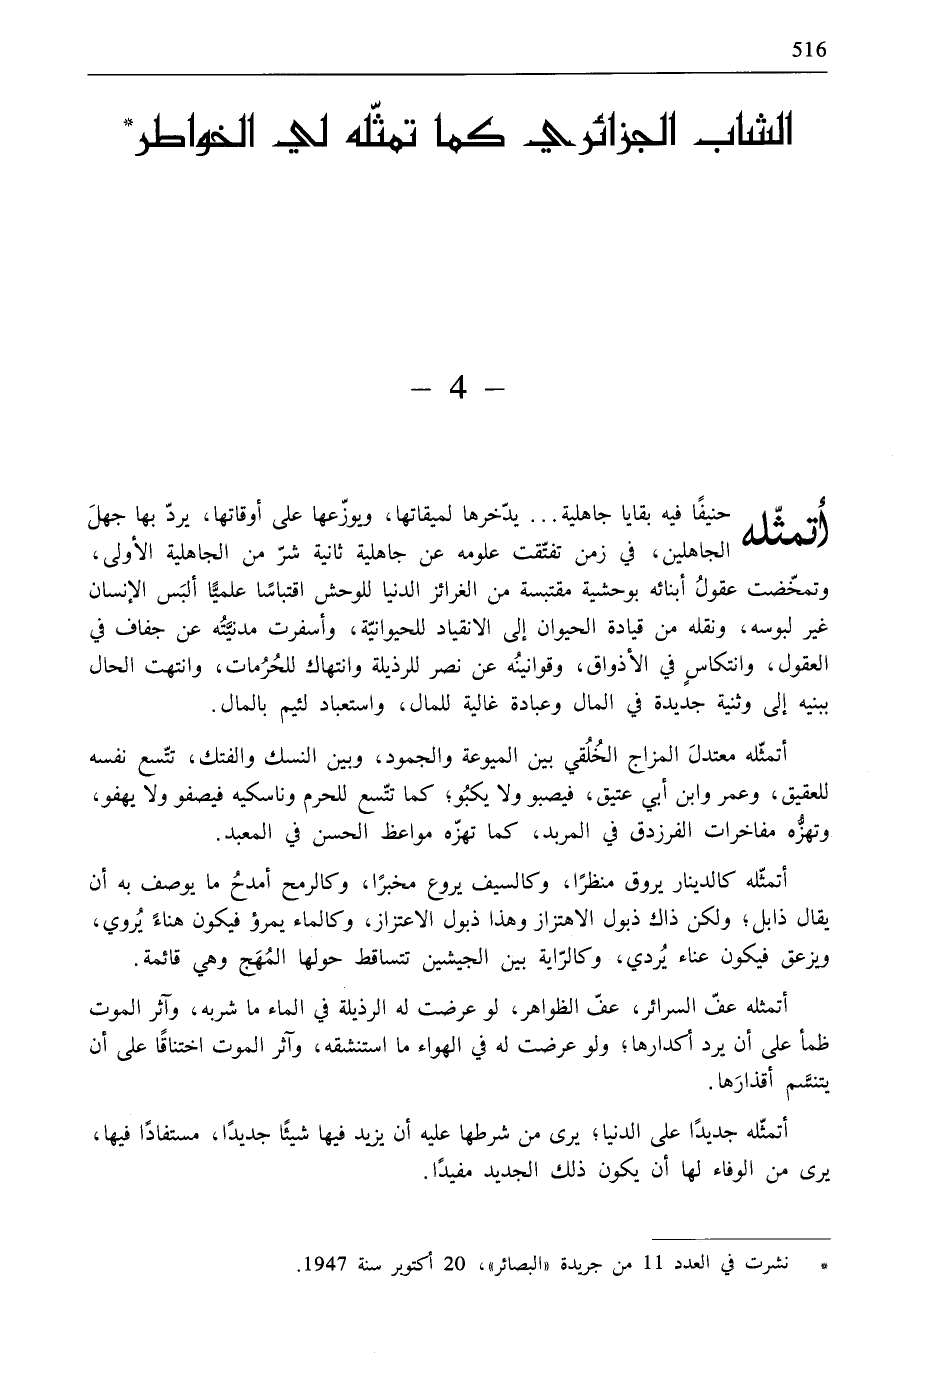 516
الشاب الجزائري كما تمثّله لي الخواطر*
– 4 –
أتمثّله حنيفًا فيه بقايا جاهلية... يدّخرها لميقاتها، ويوزّعها على أوقاتها، يردّ بها جهلَ
الجاهلين، في زمن تفتّقت علومه عن جاهلية ثانية شرّ من الجاهلية الأولى،
وتمخّضت عقولُ أبنائه بوحشية مقتبسة من الغرائز الدنيا للوحش اقتباسًا علميًّا ألبَس الإنسان
غير لبوسه، ونقله من قيادة الحيوان إلى الانقياد للحيوانيّة، وأسفرت مدنيَّتُه عن جفاف في
العقول، وانتكاسٍ في الأذواق، وقوانينُه عن نصر للرذيلة وانتهاك للحُرُمات، وانتهت الحال
ببنيه إلى وثنية جديدة في المال وعبادة غالية للمال، واستعباد لئيم بالمال.
أتمثّله معتدلَ المزاج الخُلُقي بين الميوعة والجمود، وبين النسك والفتك، تتّسع نفسه
للعقيق، وعمر وابن أبي عتيق، فيصبو ولا يكبُو؛ كما تتّسع للحرم وناسكيه فيصفو ولا يهفو،
وتهزُّه مفاخرات الفرزدق في المربد، كما تهزّه مواعظ الحسن في المعبد.
أتمثّله كالدينار يروق منظرًا، وكالسيف يروع مخبرًا، وكالرمح أمدحُ ما يوصف به أن
يقال ذابل؛ ولكن ذاك ذبول الاهتزاز وهذا ذبول الاعتزاز، وكالماء يمرؤ فيكون هناءً يُروي،
ويزعق فيكون عناء يُردي، وكالرّاية بين الجيشين تتساقط حولها المُهَج وهي قائمة.
أتمثله عفّ السرائر، عفّ الظواهر، لو عرضت له الرذيلة في الماء ما شربه، وآثر الموت
ظمأ على أن يرد أكدارها؛ ولو عرضت له في الهواء ما استنشقه، وآثر الموت اختناقًا على أن
يتنسَّم أقذارَها.
أتمثّله جديدًا على الدنيا؛ يرى من شرطها عليه أن يزيد فيها شيئًا جديدًا، مستفادًا فيها،
يرى من الوفاء لها أن يكون ذلك الجديد مفيدًا.
* نشرت في العدد 11 من جريدة «البصائر»، 20 أكتوبر سنة 1947.